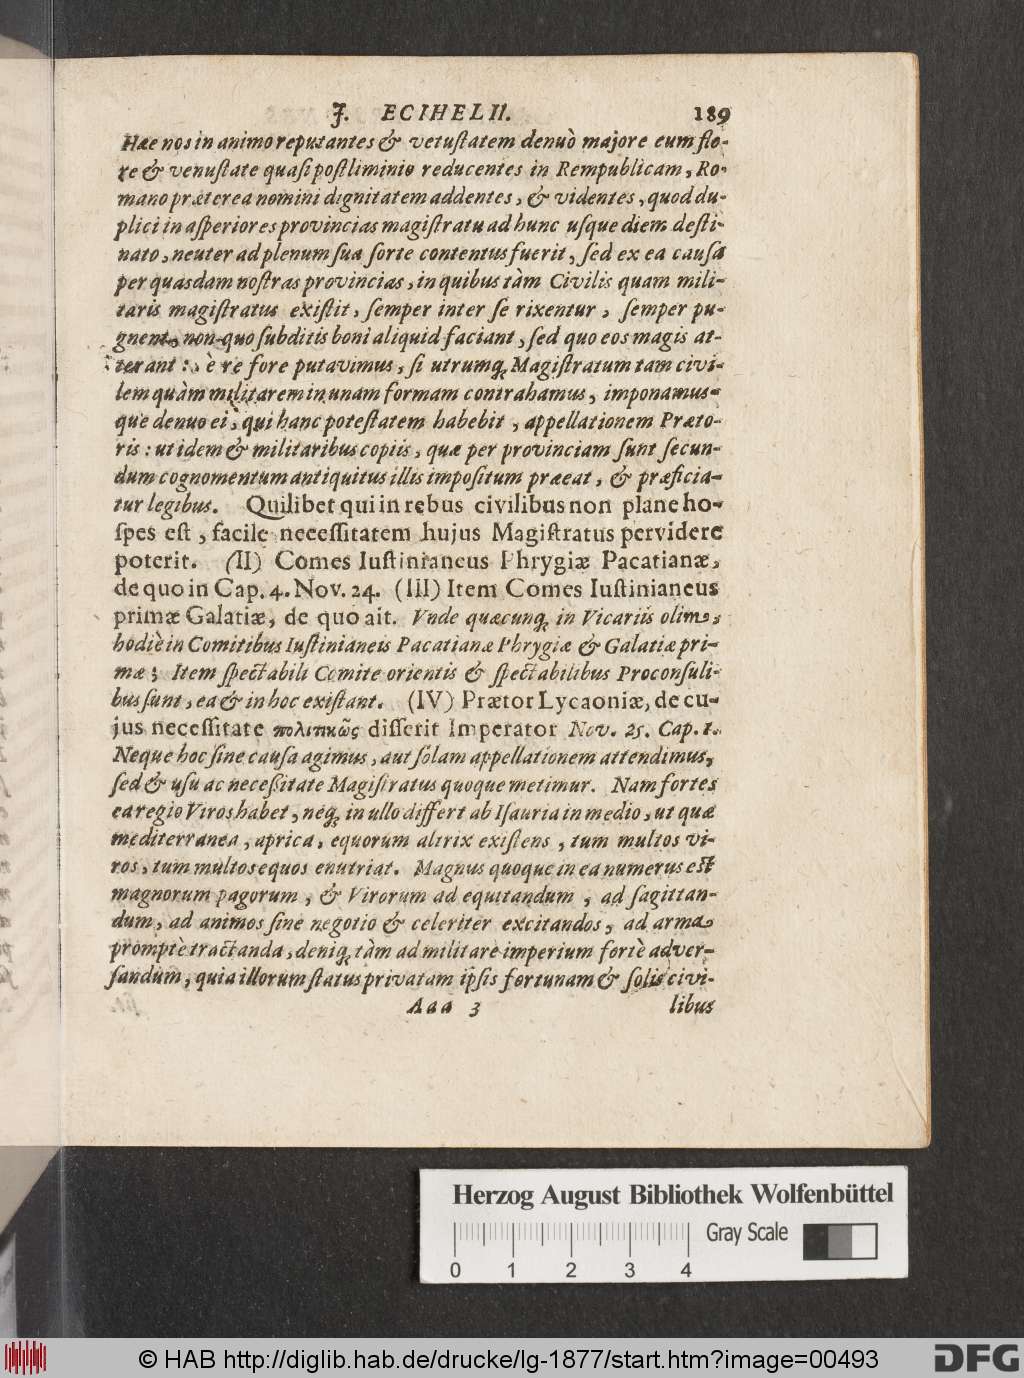 J. ECIHELII. 189
Hæe nos in animo reputantes & vetustatem denuò majore eum flo-
re & venustate quasi postliminio reducentes in Rempublicam, Ro-
mano præterea nomini dignitatem addentes, & videntes, quod du-
plici in asperiores provincias magistratu ad hunc usque diem desti-
nato, neuter ad plenum sua sorte contentus fuerit, sed ex ea causa
per quasdam nostras provincias, in quibus tàm Civilis quam mili-
taris magistratus existit, semper inter se rixentur, semper pu-
gnent, non quo subditis boni aliquid faciant, sed quo eos magis at-
terant: è re fore putavimus, si utrumq; Magistratum tam civi-
lem quàm militarem in unam formam contrahamus, imponamus-
que denuo ei, qui hanc potestatem habebit, appellationem Præto-
ris: ut idem & militaribus copiis, quæ per provinciam sunt secun-
dum cognomentum antiquitus illis impositum præeat, & præficia-
tur legibus. Quilibet qui in rebus civilibus non plane ho-
spes est, facile necessitatem hujus Magistratus pervidere
poterit. (II) Comes Iustinianeus Phrygiæ Pacatianæ,
de quo in Cap. 4. Nov. 24. (III) Item Comes Iustinianeus
primæ Galatiæ, de quo ait. Vnde quæcunq; in Vicariis olim,
hodiè in Comitibus Iustinianeis Pacatianæ Phrygiæ & Galatiæ pri-
mæ; Item spectabili Comite orientis & spectabilibus Proconsuli-
bus sunt, ea & in hoc existant. (IV) Prætor Lycaoniæ, de cu-
jus necessitate πολιτικῶς disserit Imperator Nov. 25. Cap. 1.
Neque hoc sine causa agimus, aut solam appellationem attendimus,
sed & usu ac necessitate Magistratus quoque metimur. Nam fortes
ea regio Viros habet, neq; in ullo differt ab Isauria in medio, ut quæ
mediterranea, aprica, equorum altrix existens, tum multos vi-
ros, tum multos equos enutriat. Magnus quoque in ea numerus est
magnorum pagorum, & Virorum ad equitandum, ad sagittan-
dum, ad animos sine negotio & celeriter excitandos, ad arma
promptè tractanda, deniq; tàm ad militare imperium fortè adver-
sandum, quia illorum status privatam ipsis fortunam & solis civi-
Aaa 3 libus
Herzog August Bibliothek Wolfenbüttel
Gray Scale
0 1 2 3 4
© HAB http://diglib.hab.de/drucke/lg-1877/start.htm?image=00493 DFG